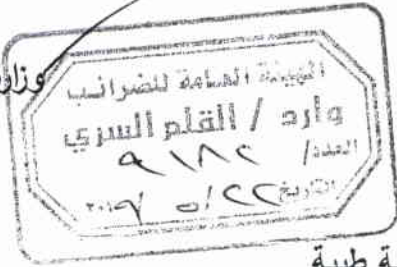 وزار
الهيئة العامة للضرائب
وارد / القلم السري
العدد / ٩١٨٢
التاريخ ٢٢/ ٥ /٢٠١٩
ة طبية